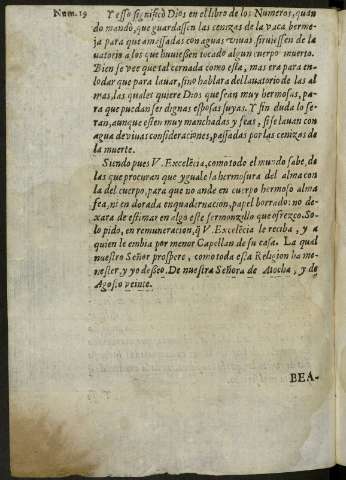 Num. 19 Y esso significó Dios en el libro de los Numeros, quan
do mandò, que guardassen las cenizas de la vaca berme-
ja para que amassadas con aguas viuas siruiessen de la
uatorio a los que huuiessen tocado algun cuerpo muerto.
Bien se vee que tal cernada como esta, mas era para en-
lodar que para lauar, sino hablara del lauatorio de las al
mas, las quales quiere Dios que sean muy hermosas, pa-
ra que puedan ser dignas esposas suyas. Y sin duda lo se-
ran, aunque esten muy manchadas y feas, si se lauan con
agua de viuas consideraciones, passadas por las cenizas de
la muerte.
Siendo pues V. Excelẽcia, como todo el mundo sabe, de
las que procuran que yguale la hermosura del alma con
la del cuerpo, para que no ande en cuerpo hermoso alma
fea, ni en dorada enquadernacion, papel borrado: no de-
xara de estimar en algo este sermonzillo que ofrezco. So-
lo pido, en remuneracion, q̃ V. Excelẽcia le reciba, y a
quien le embia por menor Capellan de su casa. La qual
nuestro Señor prospere, como toda esta Religion ha me-
nester, y yo desseo. De nuestra Señora de Atocha, y de
Agosto veinte.
BEA-